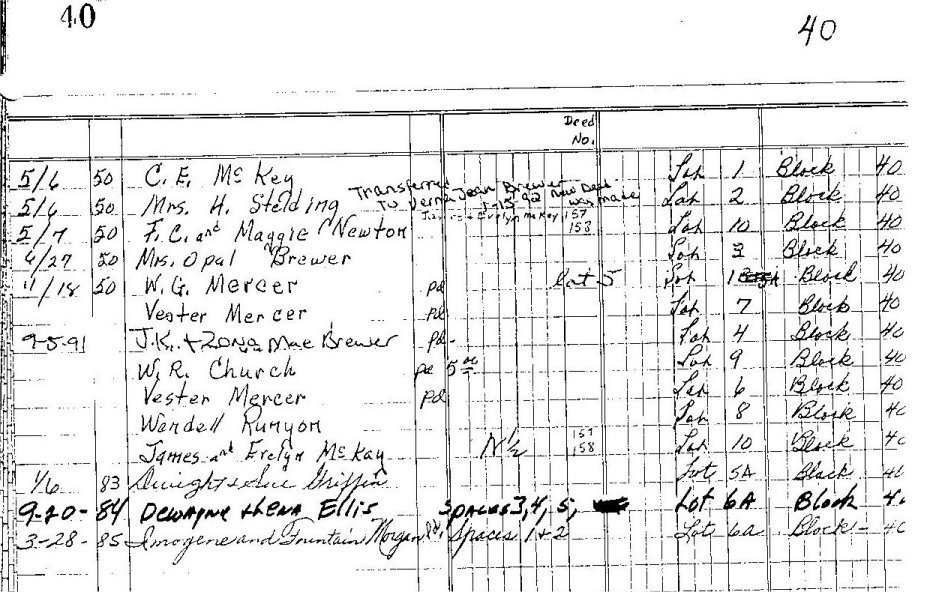 40
40
Deed
No.
5/6 50 C. E. McKey Lot 1 Block 40
Transferred
To Verna Jean Brewer
1-15-92 New Deed
was made
5/6 50 Mrs. H. Stelding Lot 2 Block 40
Evelyn McKey 157
158
5/7 50 F. C. and Maggie Newton Lot 10 Block 40
4/27 50 Mrs. Opal Brewer Lot 3 Block 40
11/18 50 W. G. Mercer pd Lot 5 Lot Block 40
Vester Mercer pd Lot 7 Block 40
9-5-91 J.K. + Zona Mae Brewer pd- Lot 4 Block 40
W. R. Church pd 5 00 Lot 9 Block 40
Vester Mercer pd Lot 6 Block 40
Wendell Runyon Lot 8 Block 40
James and Evelyn McKay N 1/2 157 158 Lot 10 Block 40
1/6 83 Dwight & Sue Griffin Lot 5A Block 40
9-20-84 Dewayne & Lena Ellis Spaces 3, 4, 5, Lot 6A Block 4
3-28-85 Imogene and Fountain Morgan Spaces 1+2 Lot 6a Block - 40